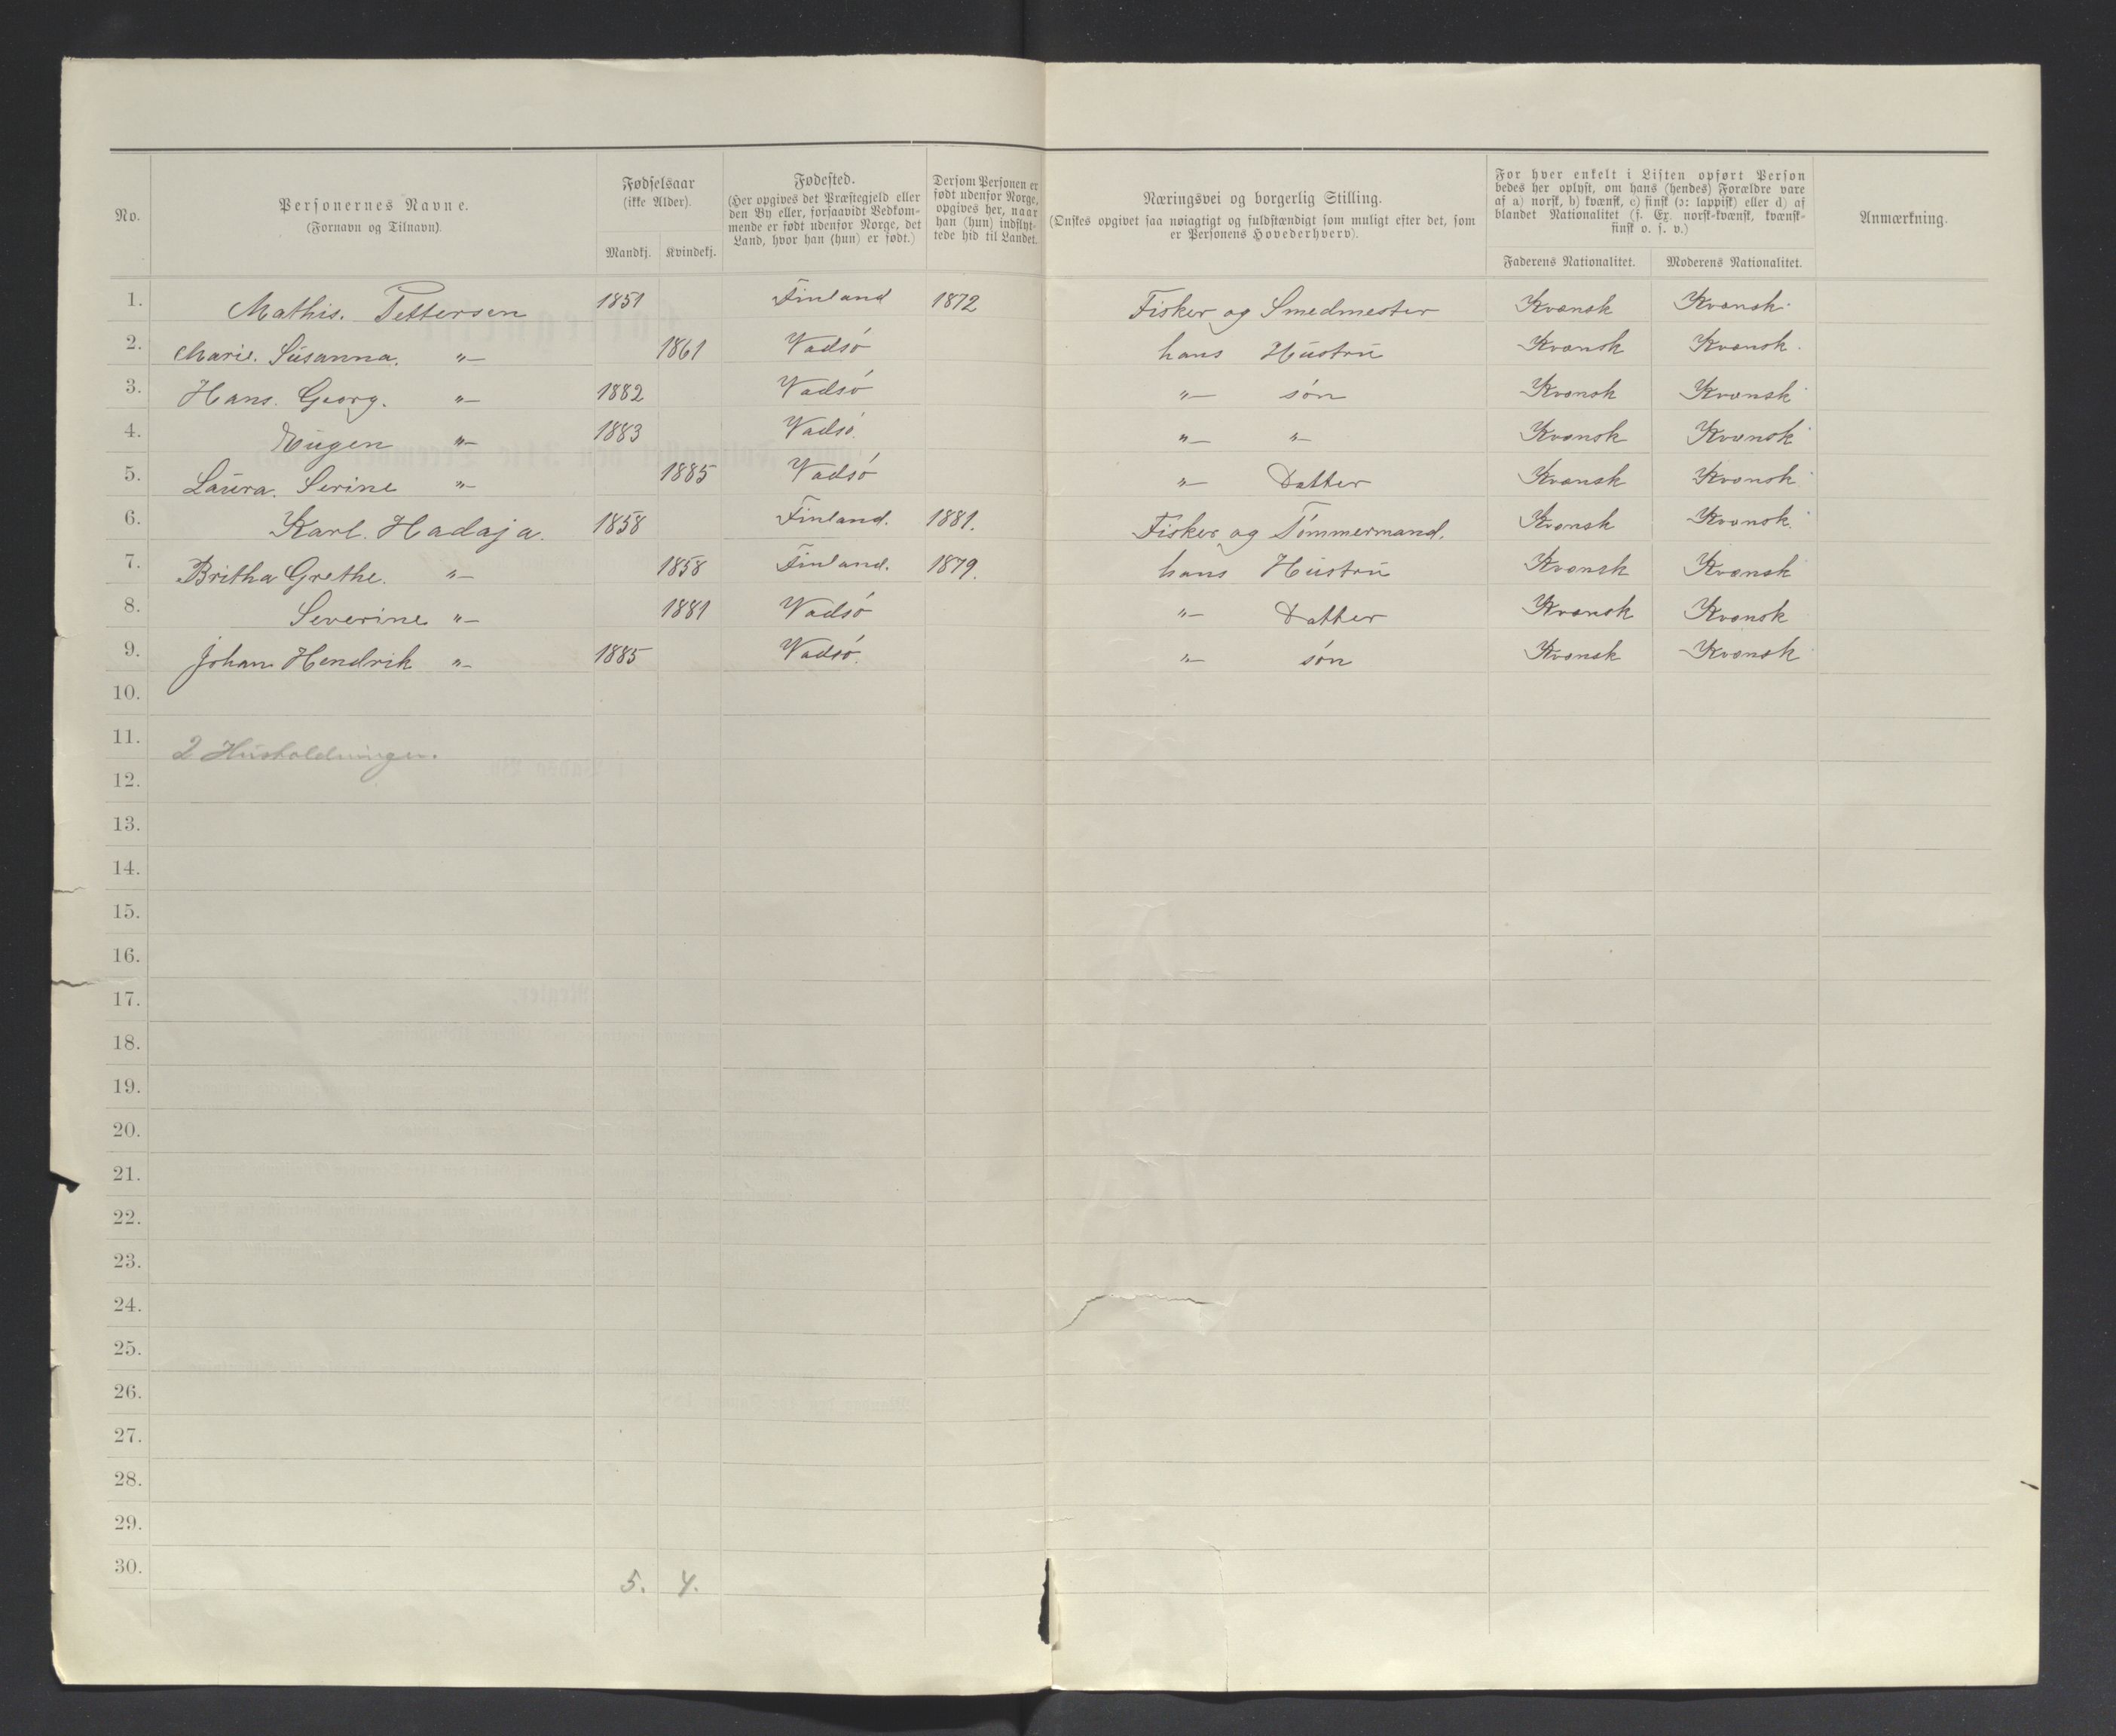 No.
Personernes Navne.
(Fornavn og Tilnavn).
Fødselsaar
(ikke Alder).
Mandkj. Kvindekj.
Fødested.
(Her opgives det Præstegjeld eller
den By eller, forsaavidt Vedkom-
mende er født udenfor Norge, det
Land, hvor han (hun) er født.)
Dersom Personen er
født udenfor Norge,
opgives her, naar
han (hun) indflyt-
tede hid til Landet.
Næringsvei og borgerlig Stilling.
(Ønskes opgivet saa nøiagtigt og fuldstændigt som muligt efter det, som
er Personens Hovederhverv).
For hver enkelt i Listen opført Person
bedes her oplyst, om hans (hendes) Forældre vare
af a) norsk, b) kvænsk, c) finsk (ɔ: lappisk) eller d) af
blandet Nationalitet (f. Ex. norsk-kvænsk, kvænsk-
finsk o. s. v.)
Faderens Nationalitet. Moderens Nationalitet.
Anmærkning.
1. Mathis. Pettersen 1851 Finland 1872 Fisker og Smedmester Kvænsk Kvænsk.
2. Marie. Susanna. "— 1861 Vadsø hans Hustru Kvænsk Kvænsk.
3. Hans. Georg. "— 1882 Vadsø "— søn Kvænsk Kvænsk
4. Eugen "— 1883 Vadsø. "— "— Kvænsk Kvænsk
5. Laura. Serine "— 1885 Vadsø "— Datter Kvænsk Kvænsk
6. Karl. Hadaja. 1858 Finland. 1881. Fisker og Tømmermand. Kvænsk Kvænsk.
7. Britha Grethe. "— 1858 Finland. 1879. hans Hustru Kvænsk Kvænsk
8. Severine "— 1881 Vadsø "— Datter Kvænsk Kvænsk
9. Johan Hendrik "— 1885 Vadsø. "— søn Kvænsk Kvænsk
10.
11. 2 Husholdninger.
12.
13.
14.
15.
16.
17.
18.
19.
20.
21.
22.
23.
24.
25.
26.
27.
28.
29.
30. 5. 4.